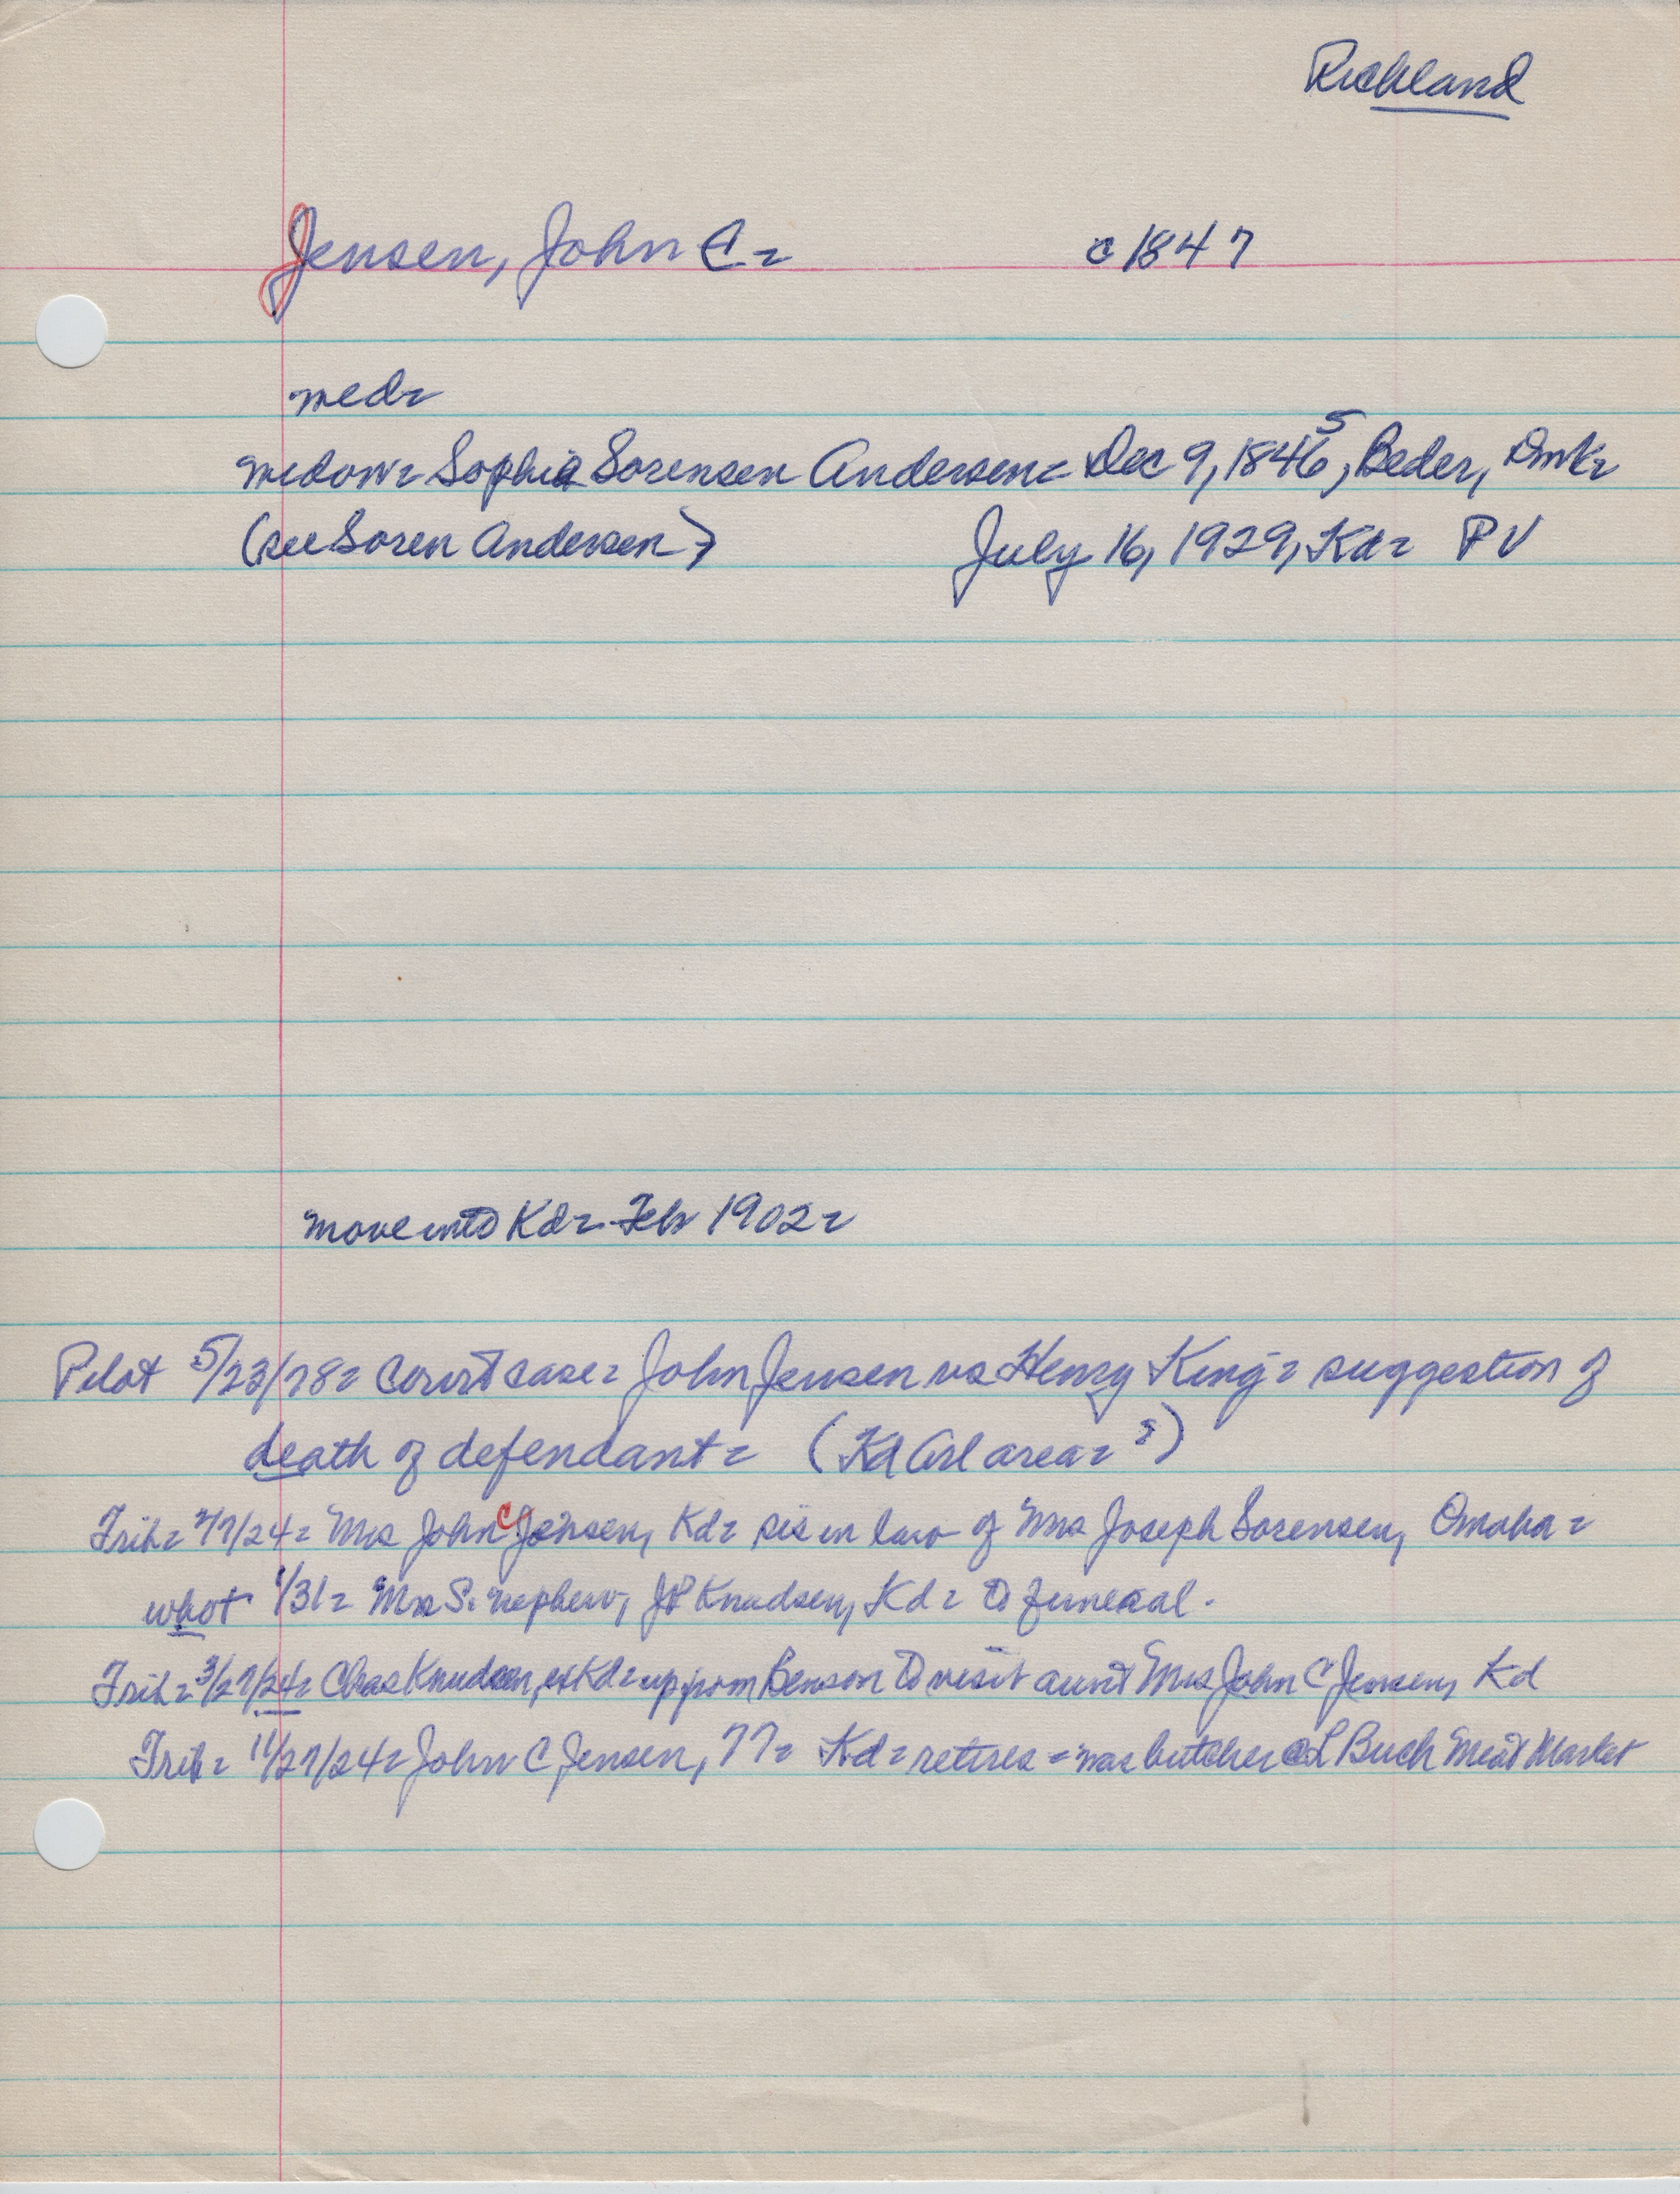 Richland
Jensen, John C= c 1847
wed=
widow= Sophia Sorensen Andersen= Dec 9, 1846 5, Beder, Dmk=
(see Soren Andersen) July 16, 1929, Kd= PV
move into Kd= Feb 1902=
Pilot 5/23/78= court case= John Jensen vs Henry King= suggestion of
death of defendant= (Kd Arl area= ?)
Trib= /7/24= Mrs John C Jensen, Kd= sis in law of Mrs Joseph Sorensen, Omaha=
who 1/31= Mrs S. nephew, JP Knudsen, Kd= to funeral.
Trib= 3/27/24= Chas Knudsen, exKd= up from Benson to visit aunt Mrs John C Jensen, Kd
Trib= 11/27/24= John C Jensen, 77= Kd= retires= was butcher @ L Buch Meat Market